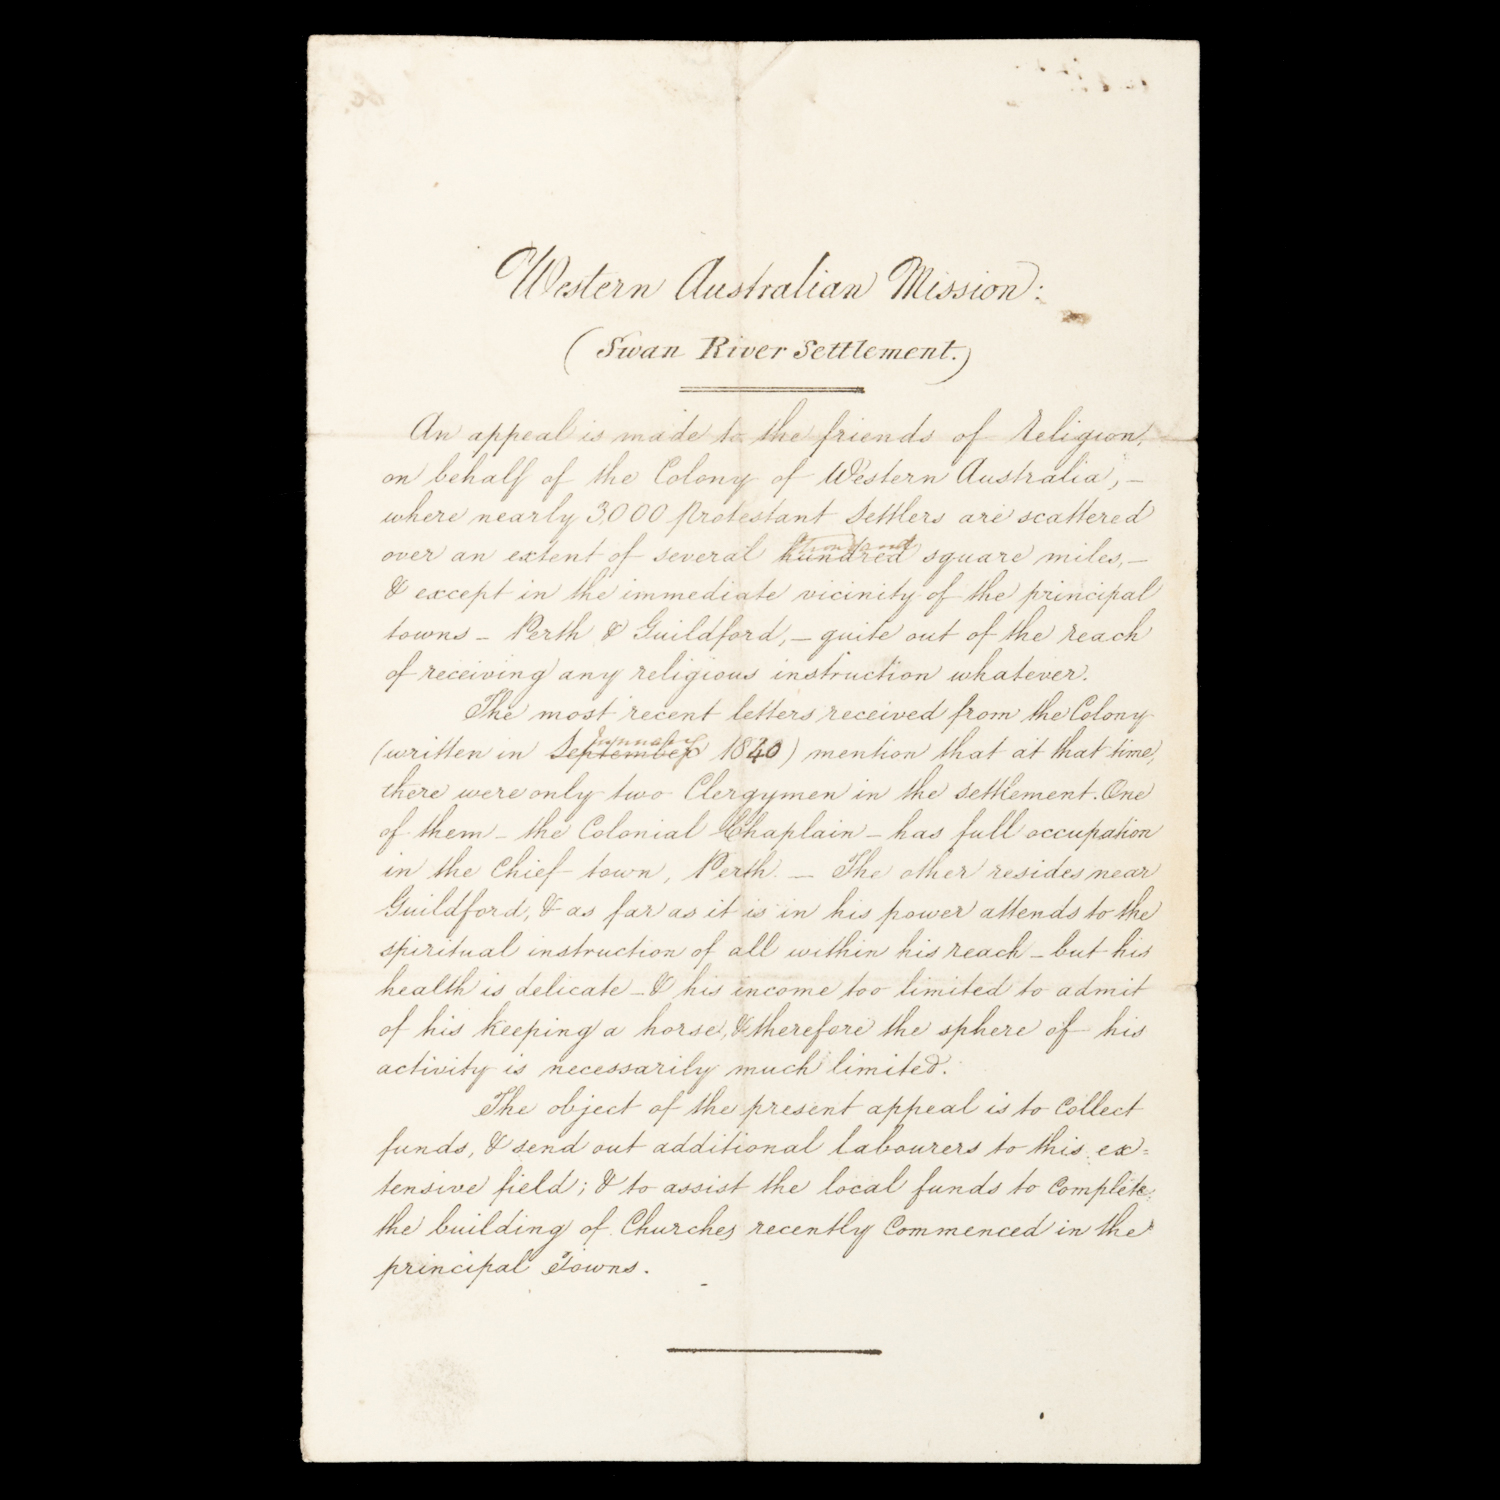 Western Australian Mission:
(Swan River Settlement.)
An appeal is made to the friends of Religion,
on behalf of the Colony of Western Australia, –
where nearly 3000 Protestant Settlers are scattered
thousand
over an extent of several hundred square miles, –
& except in the immediate vicinity of the principal
towns – Perth & Guildford, – quite out of the reach
of receiving any religious instruction whatever.
The most recent letters received from the Colony
January
(written in September 1840) mention that at that time,
there were only two Clergymen in the settlement. One
of them – the Colonial Chaplain – has full occupation
in the Chief town, Perth. – The other resides near
Guildford, & as far as it is in his power attends to the
spiritual instruction of all within his reach – but his
health is delicate – & his income too limited to admit
of his keeping a horse, & therefore the sphere of his
activity is necessarily much limited.
The object of the present appeal is to Collect
funds, & send out additional labourers to this ex=
tensive field; & to assist the local funds to Complete
the building of Churches recently Commenced in the
principal Towns.